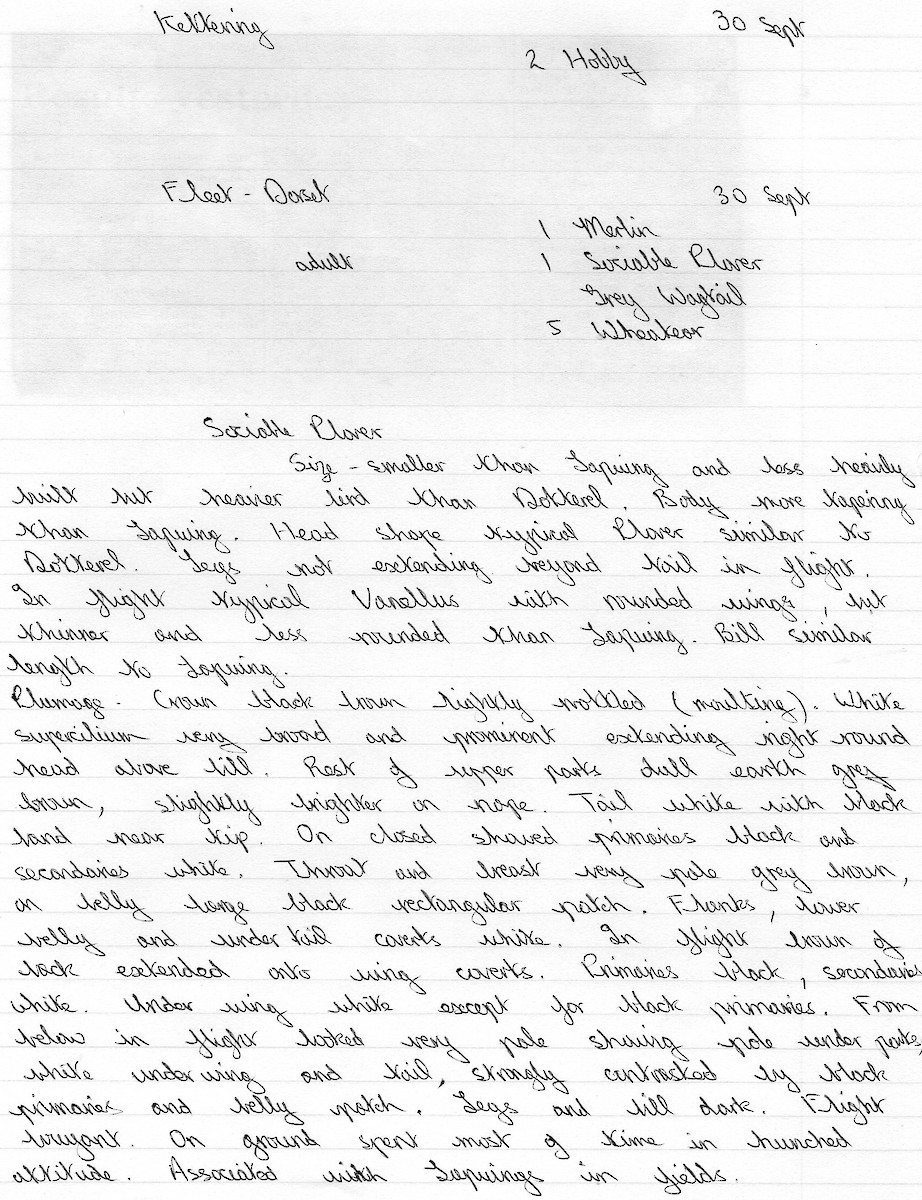 Kettering 30 Sept
2 Hobby
Fleet - Dorset 30 Sept
1 Merlin
adult 1 Sociable Plover
Grey Wagtail
5 Wheatear
Sociable Plover
Size - smaller than Lapwing and less heavily
built but heavier bird than Dotterel. Body more tapering
than Lapwing. Head shape typical Plover similar to
Dotterel. Legs not extending beyond tail in flight.
In flight typical Vanellus with rounded wings, but
thinner and less rounded than Lapwing. Bill similar
length to Lapwing.
Plumage - Crown black brown lightly mottled (moulting). White
supercilium very broad and prominent extending right round
head above bill. Rest of upper parts dull earth grey
brown, slightly brighter on nape. Tail white with black
band near tip. On closed showed primaries black and
secondaries white. Throat and breast very pale grey brown,
on belly large black rectangular patch. Flanks, lower
belly and under tail coverts white. In flight brown of
back extended onto wing coverts. Primaries black, secondaries
white. Under wing white except for black primaries. From
below in flight looked very pale showing pale under parts,
white under wing and tail, strongly contrasted by black
primaries and belly patch. Legs and bill dark. Flight
buoyant. On ground spent most of time in hunched
attitude. Associated with Lapwings in fields.